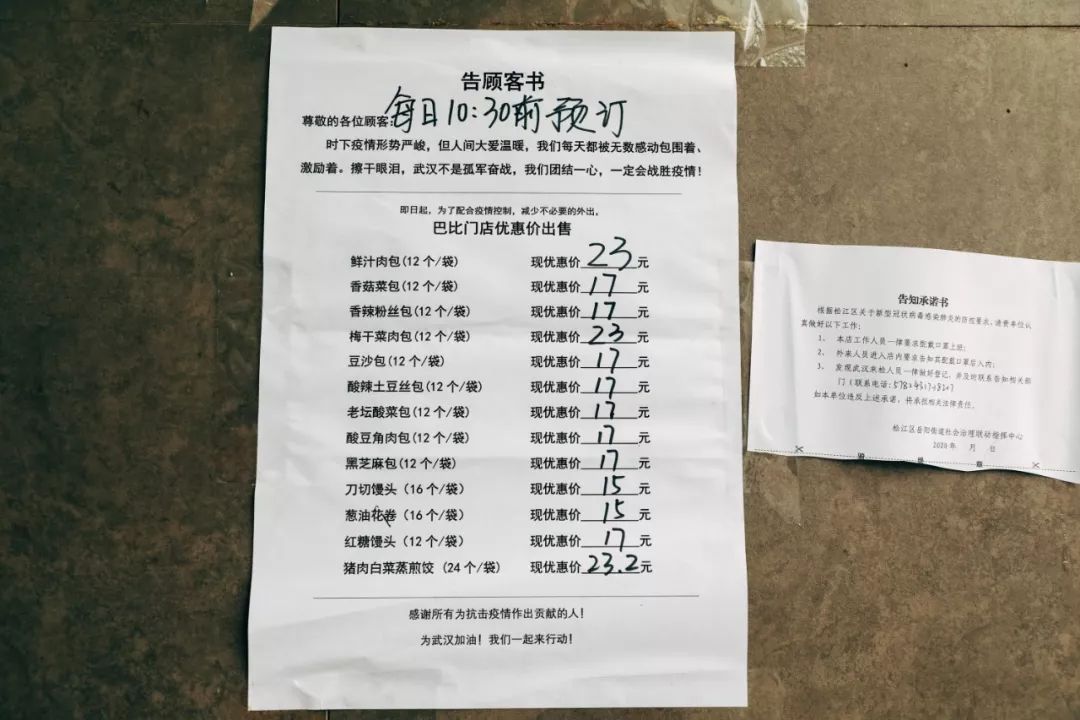 告顾客书
尊敬的各位顾客:每日10:30前预订
时下疫情形势严峻，但人间大爱温暖，我们每天都被无数感动包围着、
激励着。擦干眼泪，武汉不是孤军奋战，我们团结一心，一定会战胜疫情！
即日起，为了配合疫情控制，减少不必要的外出。
巴比门店优惠价出售
鲜汁肉包(12个/袋) 现优惠价23元
香菇菜包(12个/袋) 现优惠价17元
香辣粉丝包(12个/袋) 现优惠价17元
梅干菜肉包(12个/袋) 现优惠价23元
豆沙包(12个/袋) 现优惠价17元
酸辣土豆丝包(12个/袋) 现优惠价17元
老坛酸菜包(12个/袋) 现优惠价17元
酸豆角肉包(12个/袋) 现优惠价17元
黑芝麻包(12个/袋) 现优惠价17元
刀切馒头（16个/袋） 现优惠价15元
葱油花卷（16个/袋） 现优惠价15元
红糖馒头（12个/袋） 现优惠价17元
猪肉白菜蒸煎饺（24个/袋） 现优惠价23.2元
感谢所有为抗击疫情作出贡献的人！
为武汉加油！我们一起来行动！
告知承诺书
根据松江区关于新型冠状病毒感染肺炎的防控要求，请贵单位认
真做好以下工作：
1、 本店工作人员一律要求配戴口罩上班；
2、 外来人员进入店内要求告知其配戴口罩后入内；
3、 发现武汉来松人员一律做好登记，并及时联系告知相关部
门（联系电话:
如本单位违反上述承诺，将承担相关法律责任。
松江区岳阳街道社会治理联动指挥中心
2020年 月 日